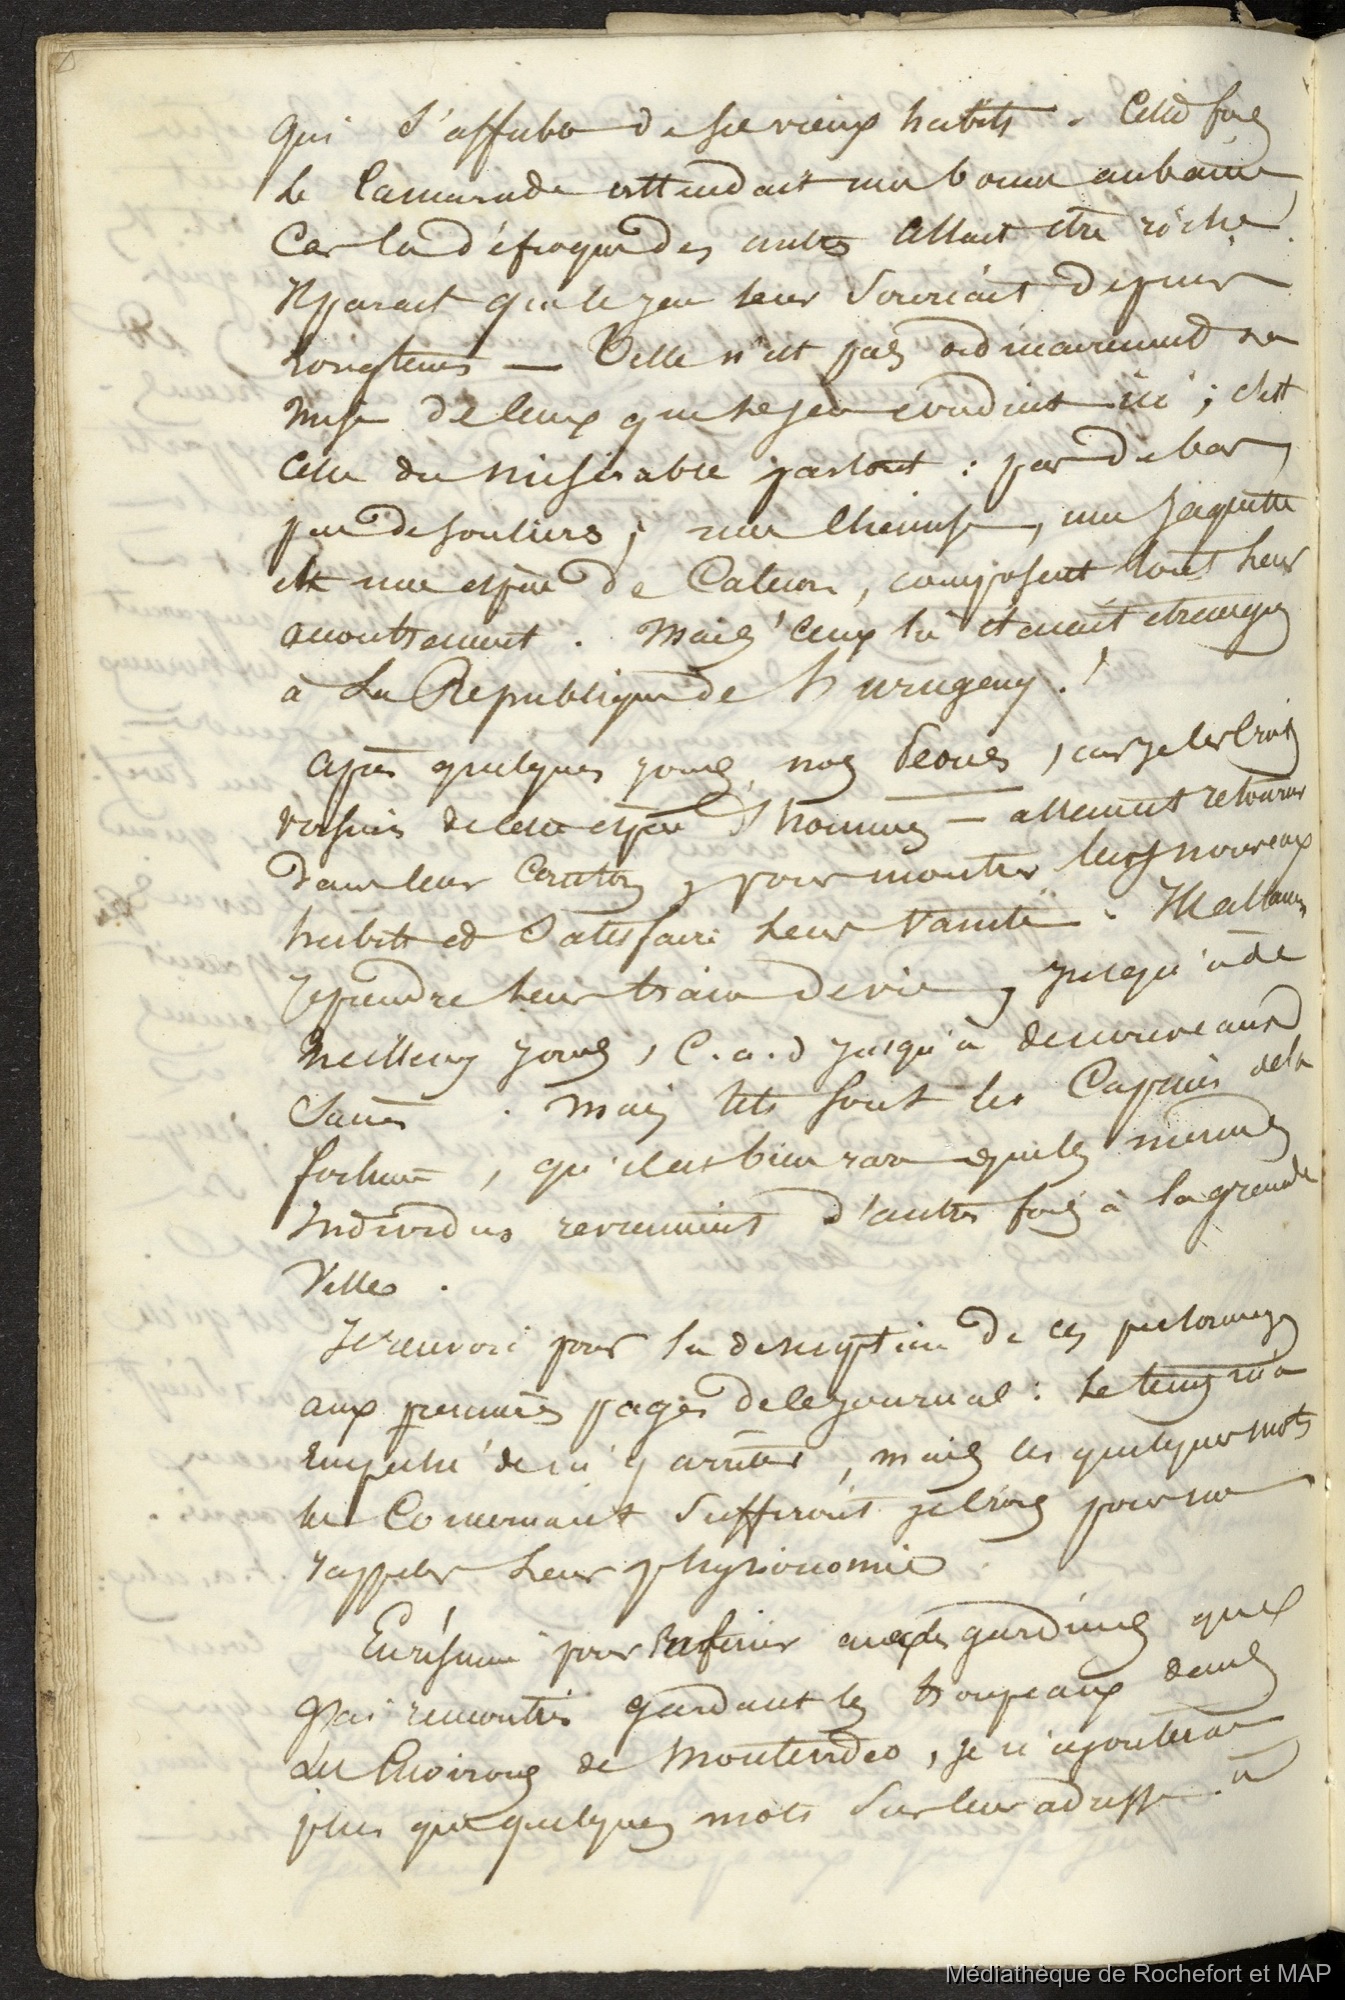 qui s'affuble de ses vieux habits. Cette fois
le Camarade attendait une bonne aubaine
Car la défroque des autres allait etre riche.
Il parait que le jeu leur souriait depuis
longtems — Telle n'est pas ordinairement la
mise de ceux que le jeu conduit ici ; c'est
celle du misérable partout : pas de bas,
pas de souliers ; une chemise, une jaquette
et une espèce de Caleçon, composent tout leur
accoutrement. Mais ceux là étaient étrangers
à la République de !
après quelques jours, nos Péons, car je les crois
voisins de cette espèce d'hommes — allaient retourner
dans leur Canton, pour montrer leurs nouveaux
habits et satisfaire leur vanité. Il allaient
reprendre leur train de vie, jusqu'à de
meilleurs jours, C.a.d jusqu'à de nouveaux
. Mais tels sont les Caprices de la
fortune, qu'il est bien rare que les mêmes
individus reviennent d'autres fois à la grande
Ville.
Je renvoie pour la description de ces personnages
aux premières pages de ce journal : le tems m'a
empeché de m'y arrêter, mais les quelques mots
les Concernant suffiront je crois pour me
rappeler leur physionomie.
En résumé pour en finir avec les gardiens que
j'ai rencontrés gardant les troupeaux dans
les Environs de Montevideo, je n'ajouterai
plus que quelques mots sur leur adresse à
Médiathèque de Rochefort et MAP